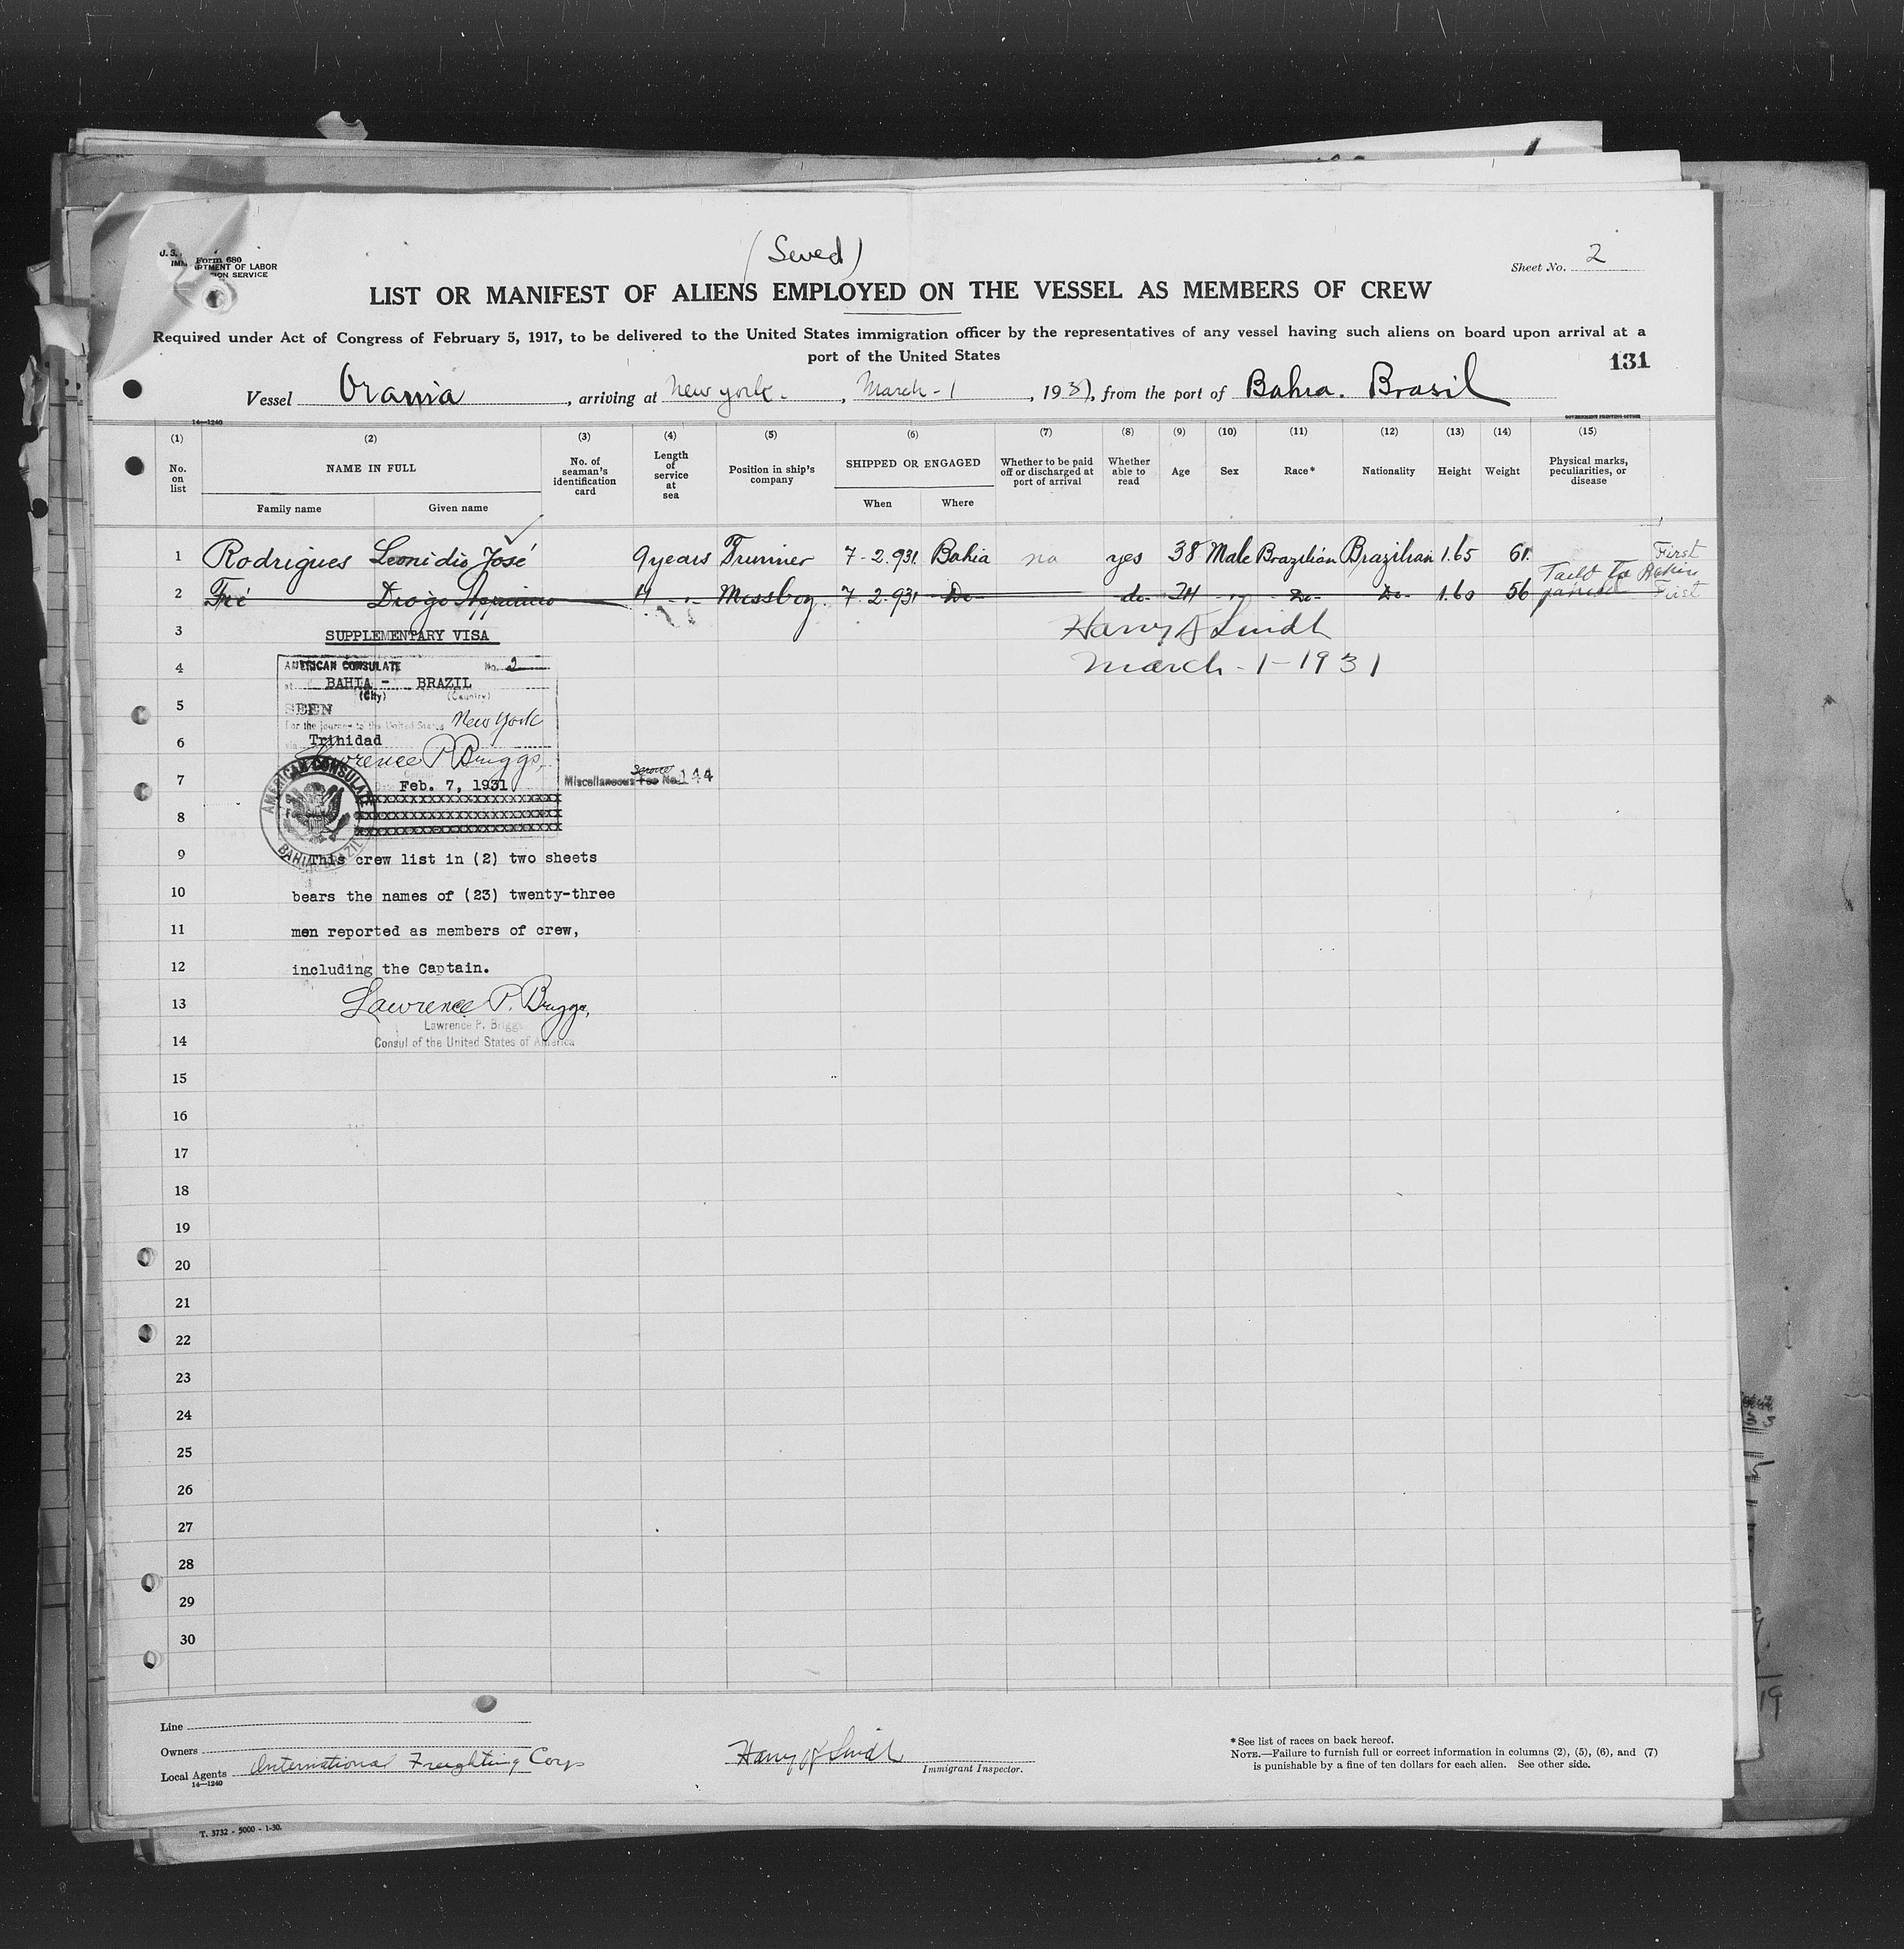 Form 680
U. S. DEPARTMENT OF LABOR
IMMIGRATION SERVICE
(Swed)
Sheet No. 2
LIST OR MANIFEST OF ALIENS EMPLOYED ON THE VESSEL AS MEMBERS OF CREW
Required under Act of Congress of February 5, 1917, to be delivered to the United States immigration officer by the representatives of any vessel having such aliens on board upon arrival at a
port of the United States
131
Vessel Urania, arriving at New York, March - 1, 1931, from the port of Bahia. Brasil
14—1240 GOVERNMENT PRINTING OFFICE
(1) (2) (3) (4) (5) (6) (7) (8) (9) (10) (11) (12) (13) (14) (15)
No. on list NAME IN FULL No. of seaman's identification card Length of service at sea Position in ship's company SHIPPED OR ENGAGED Whether to be paid off or discharged at port of arrival Whether able to read Age Sex Race* Nationality Height Weight Physical marks, peculiarities, or disease
Family name Given name When Where
1 Rodrigues Leonidio José 9 years Trimmer 7-2.931 Bahia no yes 38 Male Brazilian Brazilian 1.65 61. First
2 Fré Diogo 14 " Messboy. 7.2.931 Do do 24 " Do Do 1.60 56 Failed to First
3 SUPPLEMENTARY VISA Harry A Lindt
4 AMERICAN CONSULATE No. 2 March - 1 - 1931
at BAHIA - BRAZIL
(City) (Country)
5 SEEN
For the journey to the United States New York
6 via Trinidad
Lawrence P. Briggs,
7 Feb. 7, 1931 Miscellaneous Service Fee No. 144
AMERICAN CONSULATE
BAHIA, BRAZIL
xxxxxxxxxxxxxxxxxxxxxxxxx
8 xxxxxxxxxxxxxxxxxxxxxxxxx
xxxxxxxxxxxxxxxxxxxxxxxxx
9 This crew list in (2) two sheets
10 bears the names of (23) twenty-three
11 men reported as members of crew,
12 including the Captain.
13 Lawrence P. Briggs,
Lawrence P. Briggs
14 Consul of the United States of America
15
16
17
18
19
20
21
22
23
24
25
26
27
28
29
30
Line
Owners
Local Agents International Freighting Corp
14—1240
Harry A Lindt
Immigrant Inspector.
*See list of races on back hereof.
NOTE.—Failure to furnish full or correct information in columns (2), (5), (6), and (7)
is punishable by a fine of ten dollars for each alien. See other side.
T. 3732 - 5000 - 1-30.